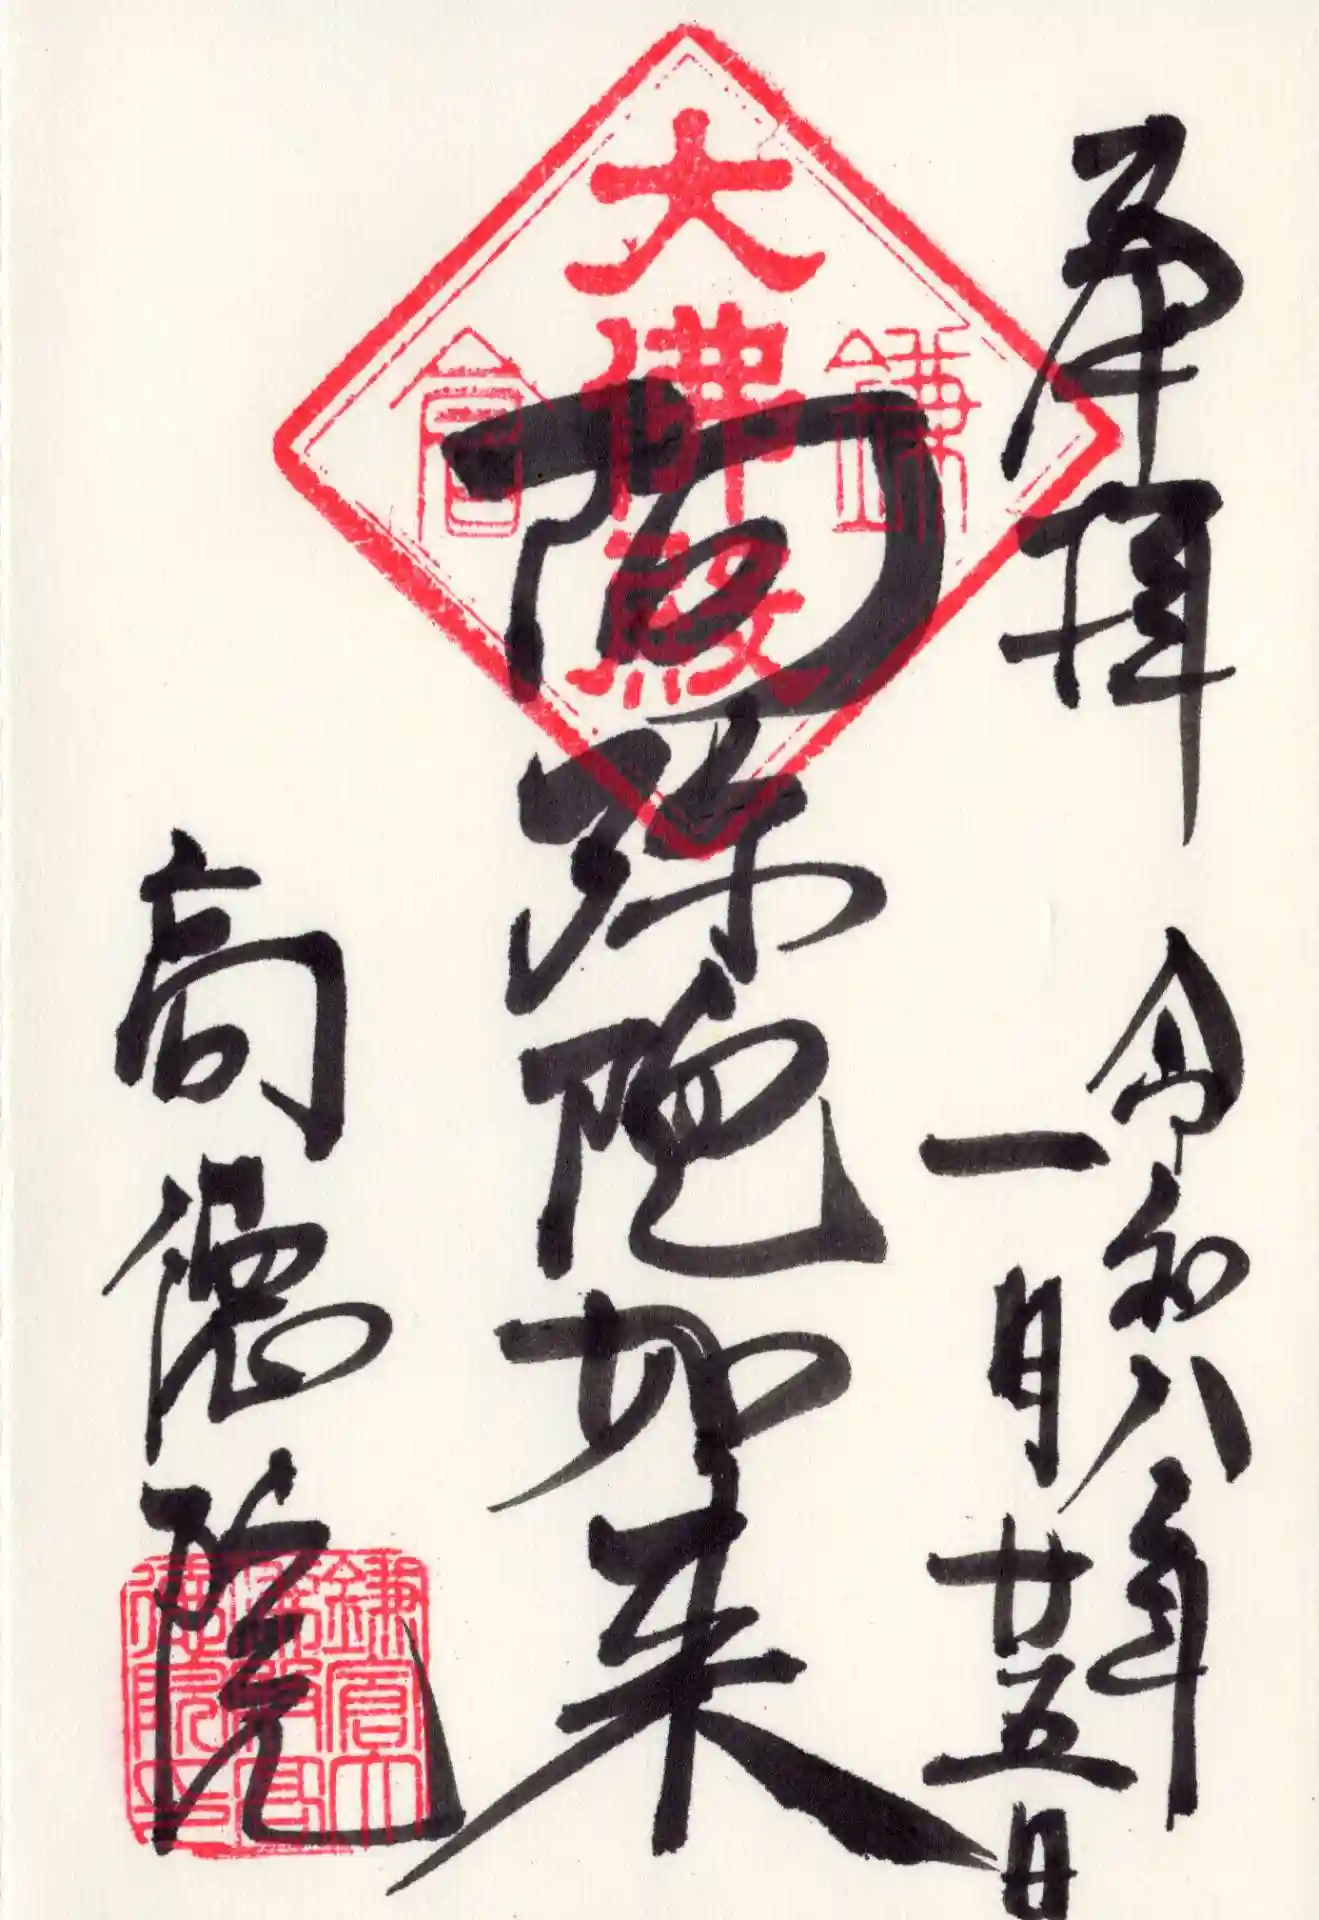 奉拝
令和八年
一月廿五日
鎌倉
大佛殿
阿弥陀如来
高徳院
鎌倉大
佛殿高
徳院印